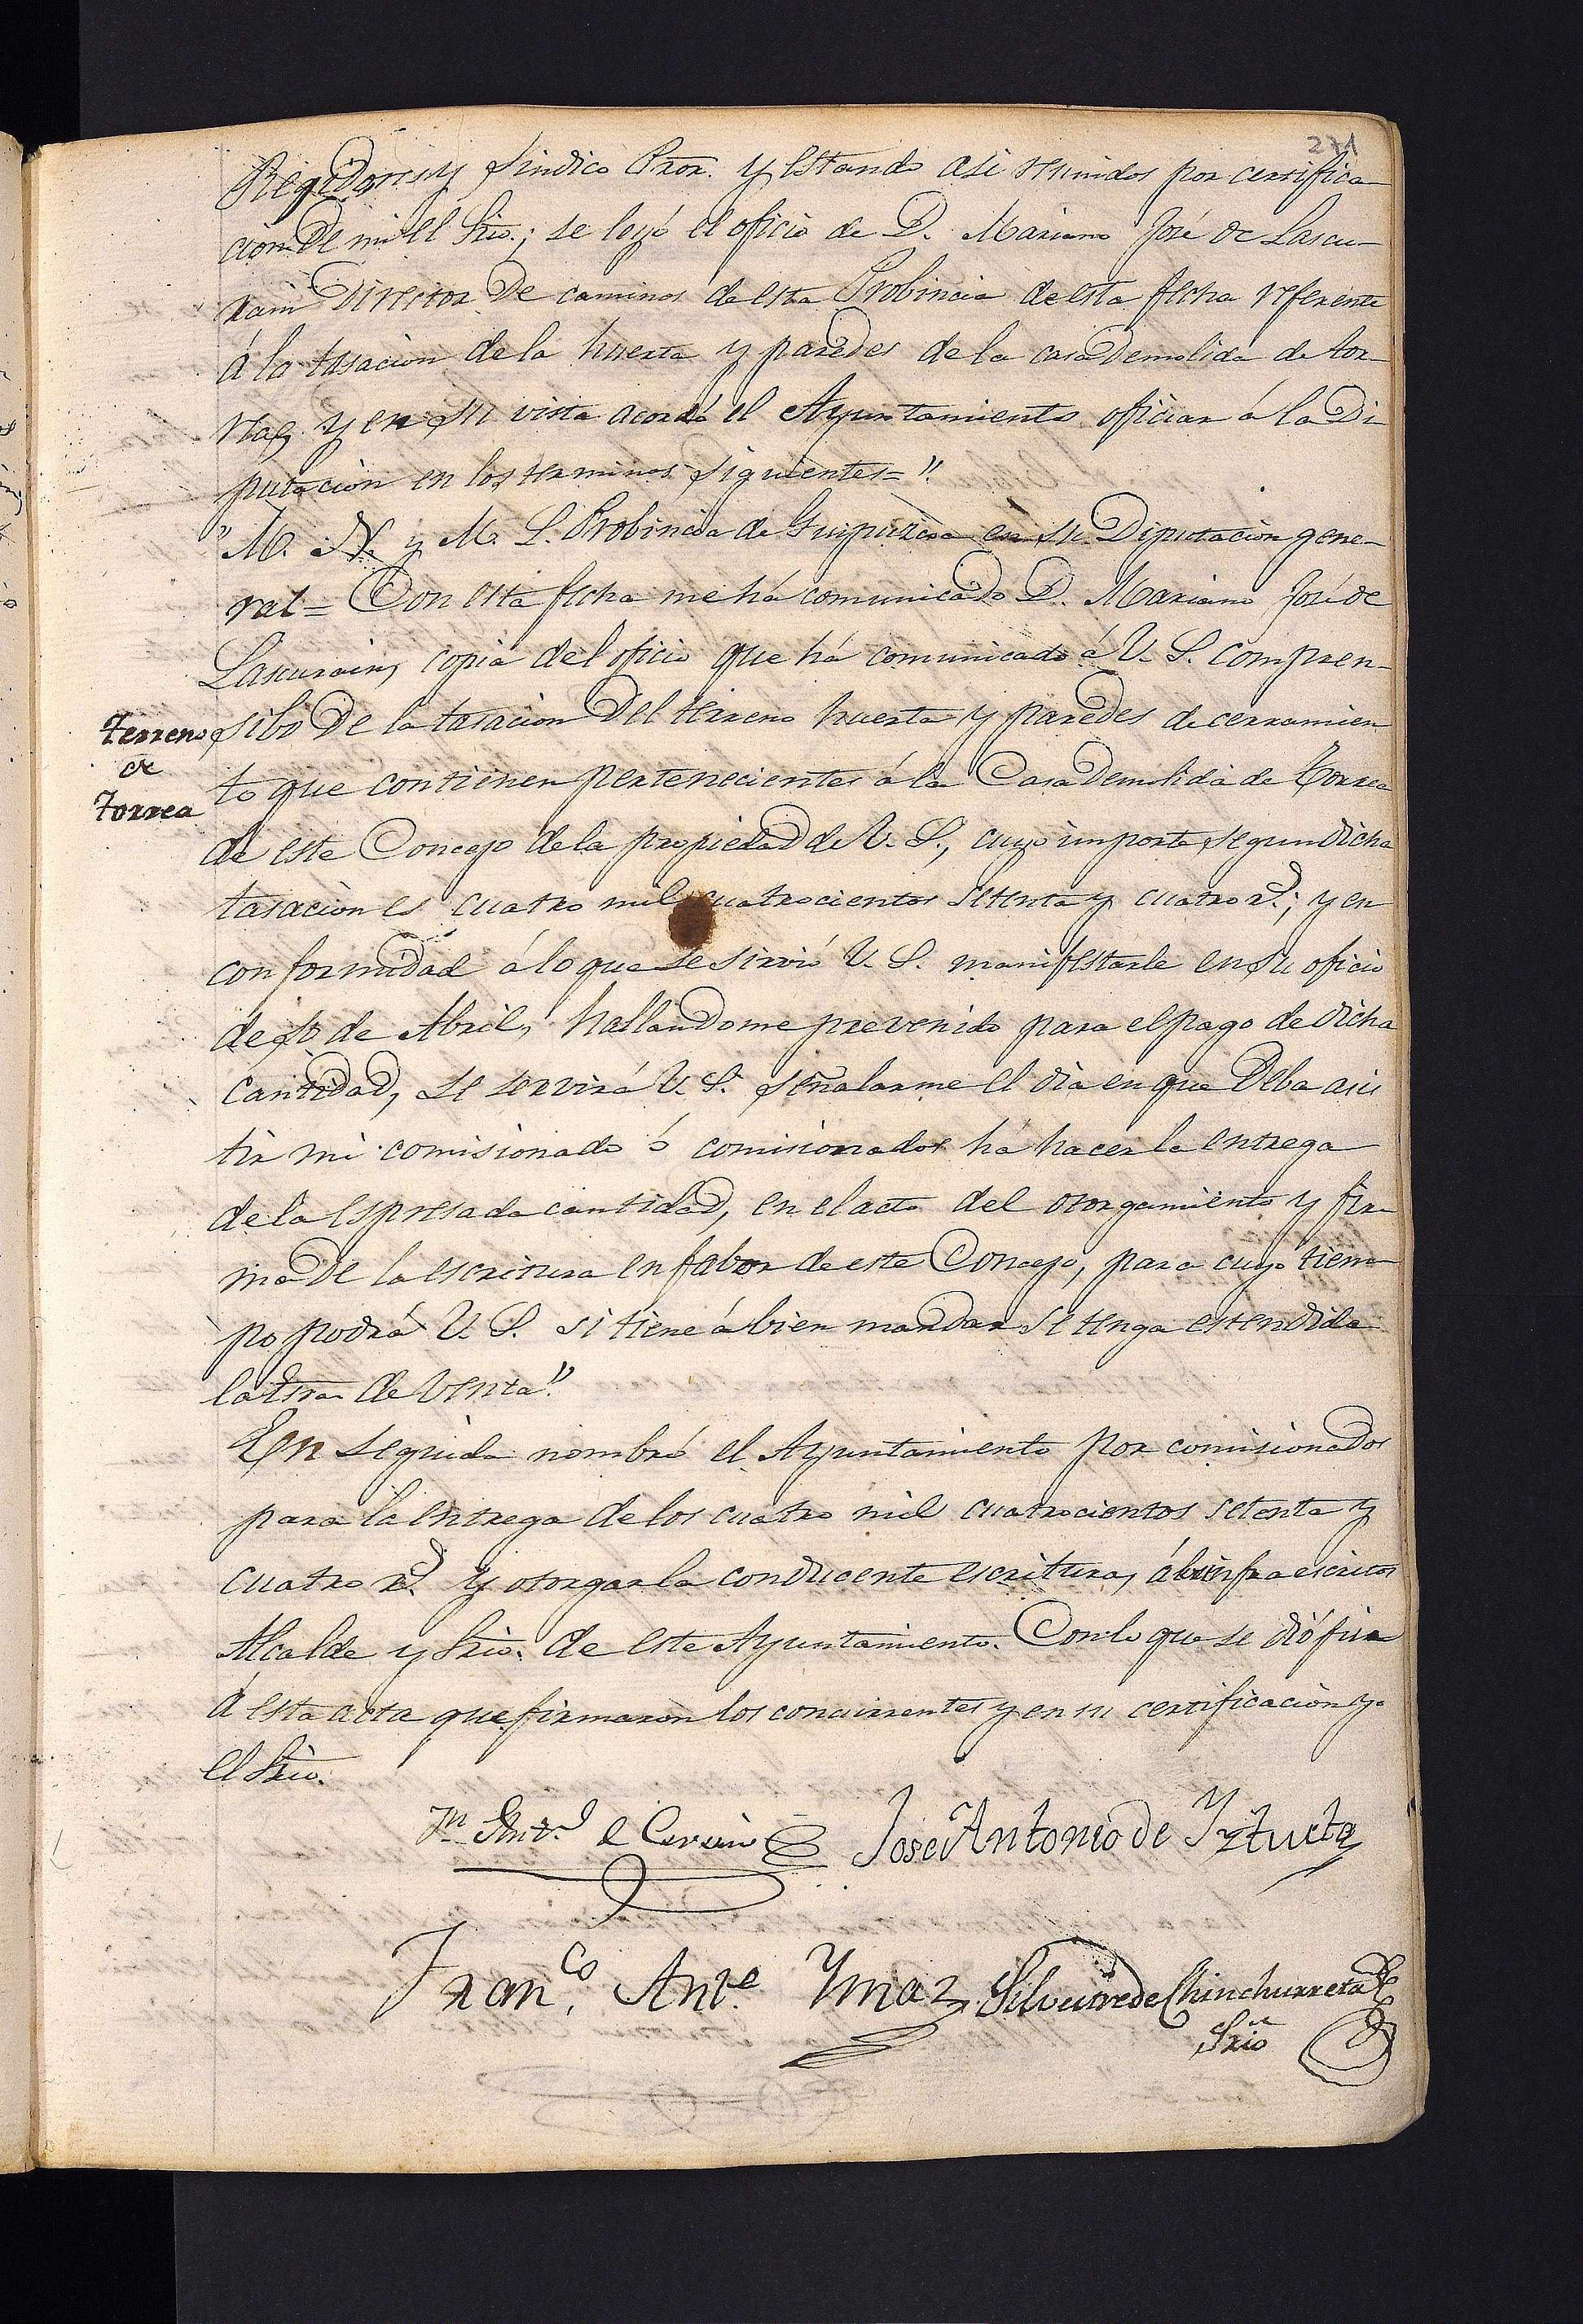 271
Regidores y Sindico Pror. y estando asi reunidos por certifica
cion de mi el Srio.; se leyó el oficio de D. Mariano José de Lascu-
rain Director de caminos de esta Probincia de esta fecha referente
á la tasacion de la huerta y paredes de la casa demolida de tor-
rea, y en su vista acordó el Ayuntamiento oficiar á la Di-
putacion en los terminos siguientes="
"M. N. y M. L. Probincia de Guipuzcoa en su Diputacion gene-
ral= Con esta fecha me há comunicado D. Mariano José de
Lascurain, copia del oficio que há comunicado á V. S. compren-
sibo de la tasacion del terreno huerta y paredes de cerramien
Terreno
de
Torrea
to que contienen pertenecientes á la Casa demolida de Torrea
de este Concejo de la propiedad de V. S., cuyo importe, segun dicha
tasacion es cuatro mil cuatrocientos setenta y cuatro rs.; y en
conformidad á lo que se sirvió V. S. manifestarle en su oficio
de de Abril, hallandome prevenido para el pago de dicha
cantidad, se servirá V. S. señalarme el dia en que deba asis
tir mi comisionado ó comisionados há hacer la entrega
de la espresada cantidad, en el acto del otorgamiento y fir-
ma de la escritura en fabor de este Concejo, para cuyo tiem-
po podrá V. S. si tiene á bien mandar se tenga estendida
la de venta".
En seguida nombró el Ayuntamiento por comisionados
para la entrega de los cuatro mil cuatrocientos setenta y
cuatro rs. y otorgar la conducente escritura, á los infraescritos
Alcalde y Srio. de este Ayuntamiento. Con lo que se dió fin
á esta acta que firmaron los concurrentes y en su certificacion yo
el Srio.
José Antonio de Yztueta
Franco. Anto. Ymaz Silvestre de Chinchurreta
Srio